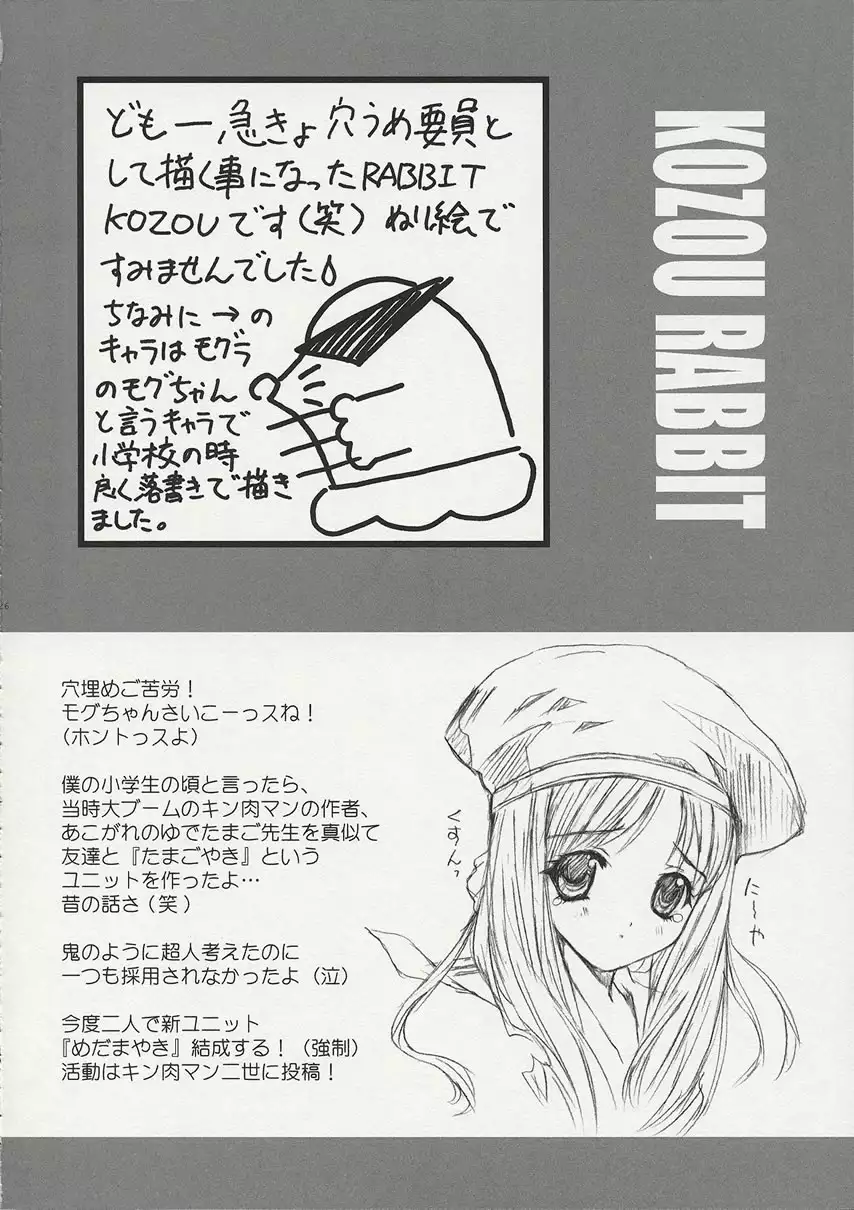 KOZOU RABBIT
どもー、急きょ穴うめ要員と
して描く事になったRABBIT
KOZOUです(笑)ぬり絵で
すみませんでした
ちなみに→の
キャラはモグラ
のモグちゃん
と言うキャラで
小学校の時
良く落書きで描き
ました。
26
穴埋めご苦労!
モグちゃんさいこーっスね!
(ホントっスよ)
僕の小学生の頃と言ったら、
当時大ブームのキン肉マンの作者、
あこがれのゆでたまご先生を真似て
友達と『たまごやき』という
ユニットを作ったよ…
昔の話さ(笑)
鬼のように超人考えたのに
一つも採用されなかったよ(泣)
今度二人で新ユニット
『めだまやき』結成する!(強制)
活動はキン肉マン二世に投稿!
くすんっ
に〜や